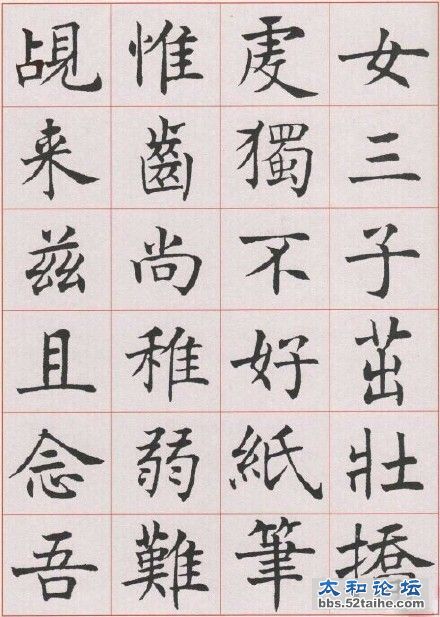 女三子茁壯撟
虔獨不好紙筆
惟齒尚稚弱難
覘来兹且念吾
太和论坛
bbs.52taihe.com